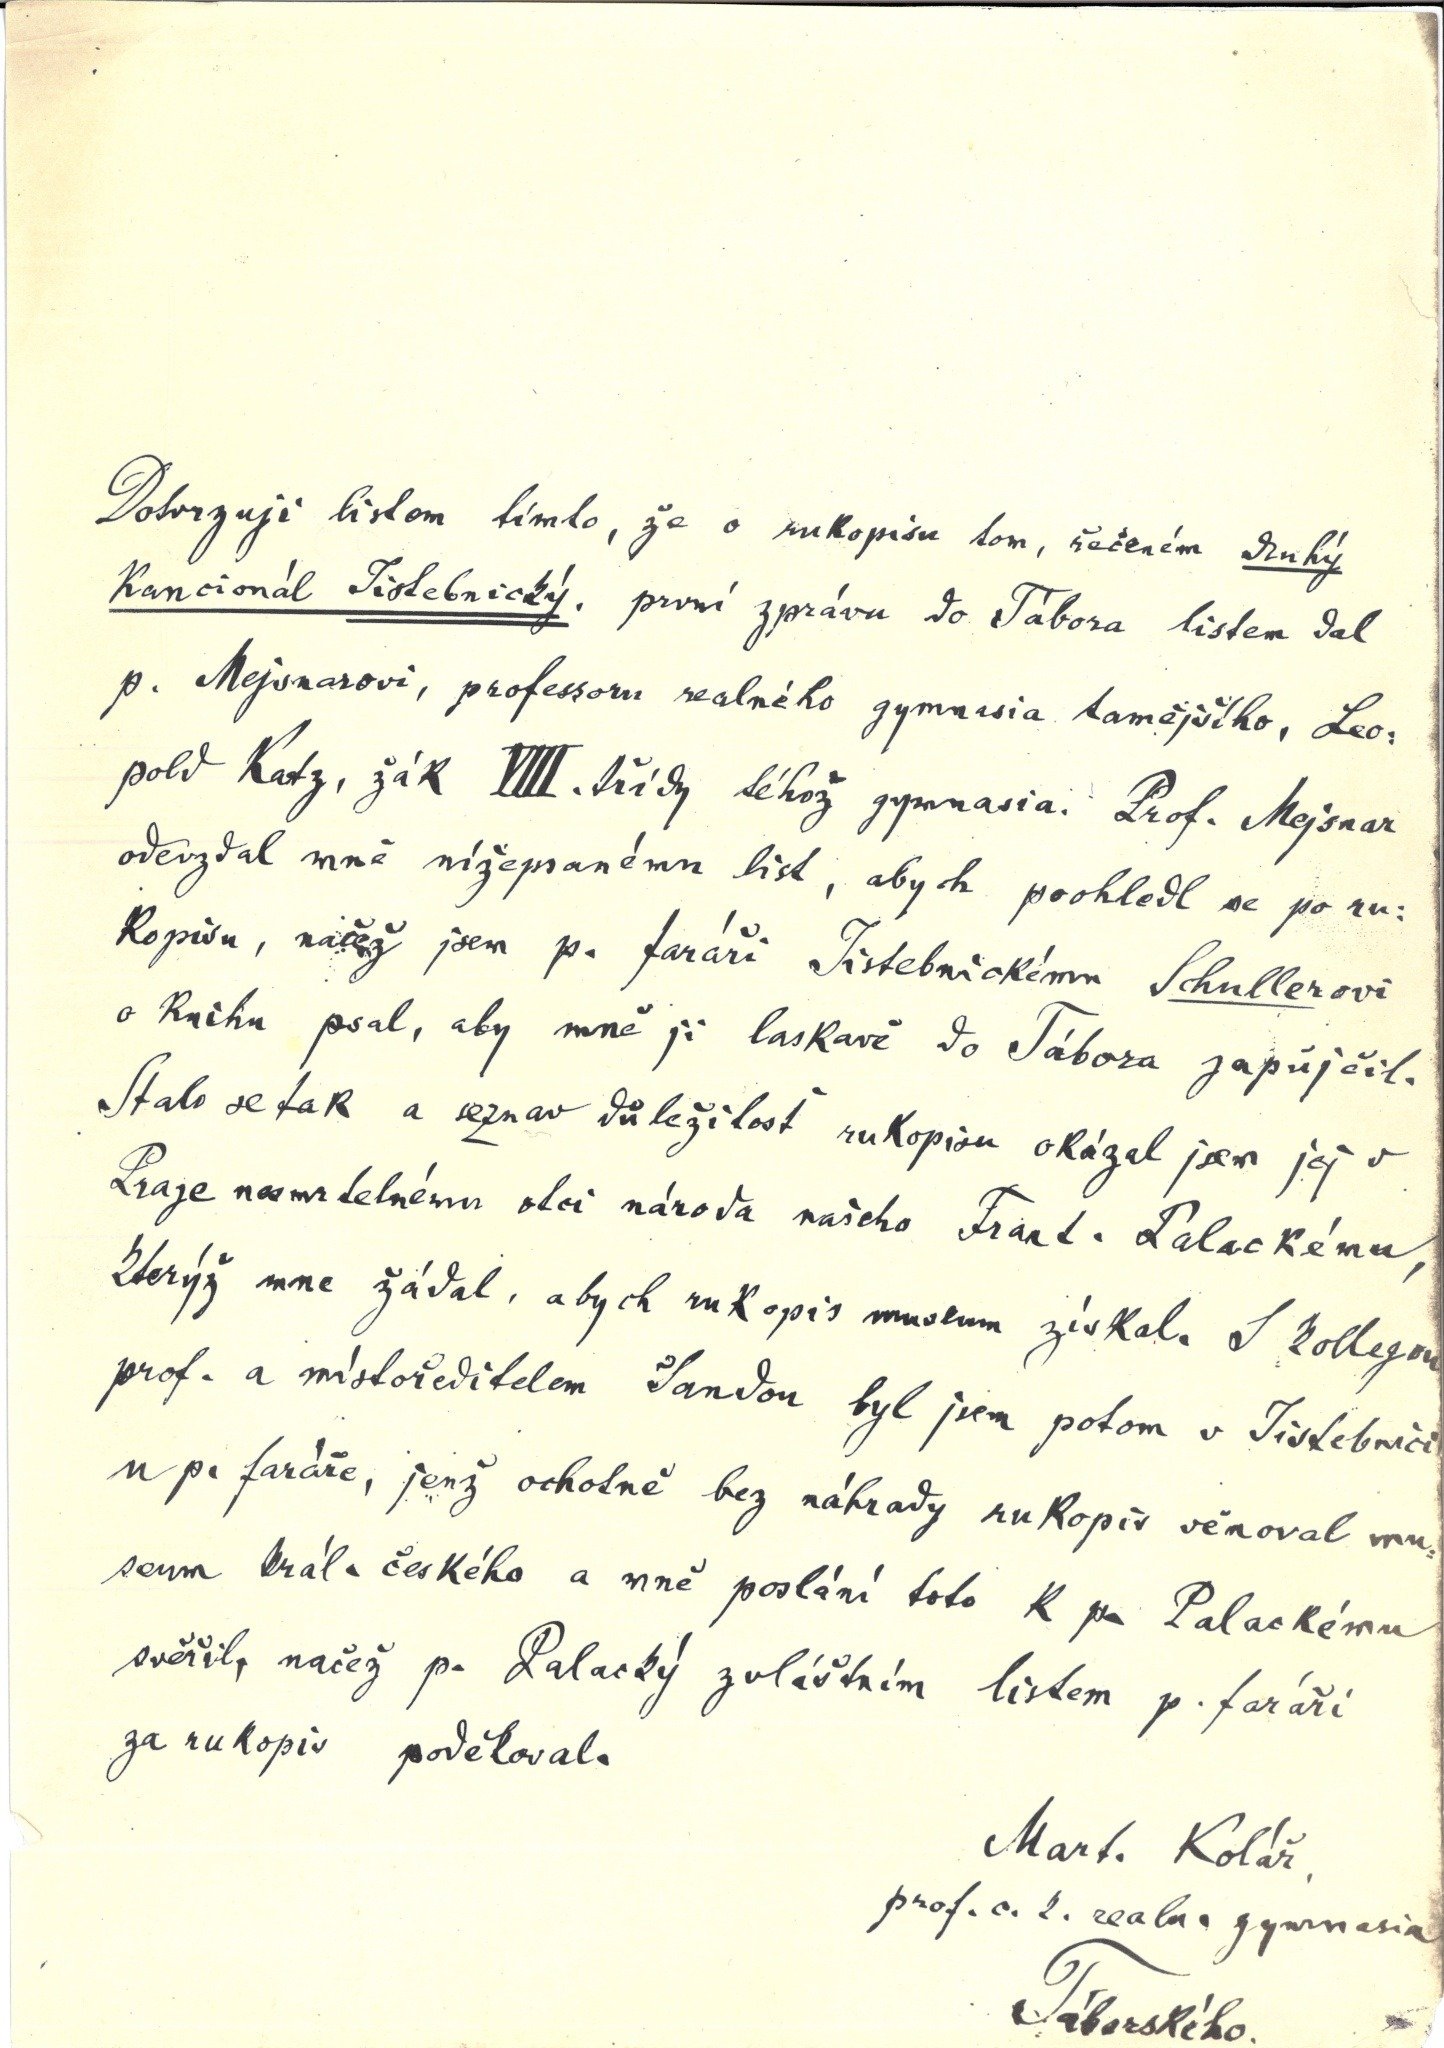 Dotvrzuji listem tímto, že o rukopisu tom, řečeném druhý
Kancionál Jistebnický, první zprávu do Tábora listem dal
p. Mejsnarovi, professoru realného gymnasia tamějšího, Leo:
pold Katz, žák VIII. třídy téhož gymnasia. Prof. Mejsnar
odevzdal mně nížepsanému list, abych poohledl se po ru:
kopisu, načež jsem p. faráři Jistebnickému Schullerovi
o knihu psal, aby mně ji laskavě do Tábora zapůjčil.
Stalo se tak a seznav důležitost rukopisu okázal jsem jej v
Praze nesmrtelnému otci národa našeho Frant. Palackému,
kterýž mne žádal, abych rukopis museum získal. S kollegou
prof. a místoředitelem Šandou byl jsem potom v Jistebnici
u p. faráře, jenž ochotně bez náhrady rukopis věnoval mu:
seum král. českého a mně poslání toto k p. Palackému
svěřil, načež p. Palacký zvláštním listem p. faráři
za rukopis poděkoval.
Mart. Kolář,
prof. c. k. realn. gymnasia
Táborského.